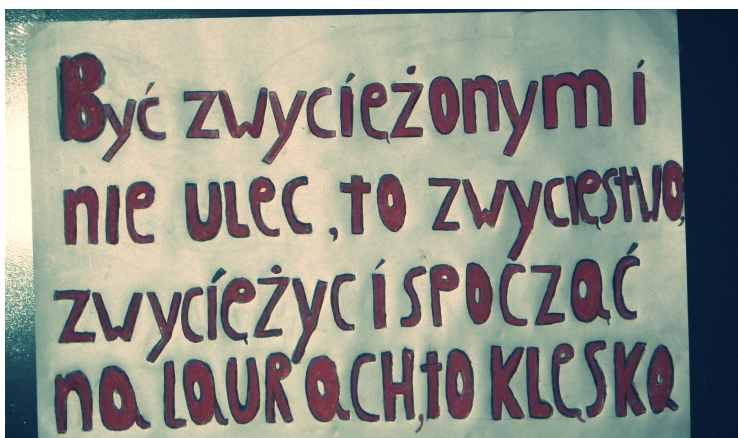 Być zwyciężonym i
nie ulec, to zwycięstwo,
zwyciężyc i spocząć
na laurach, to klęska